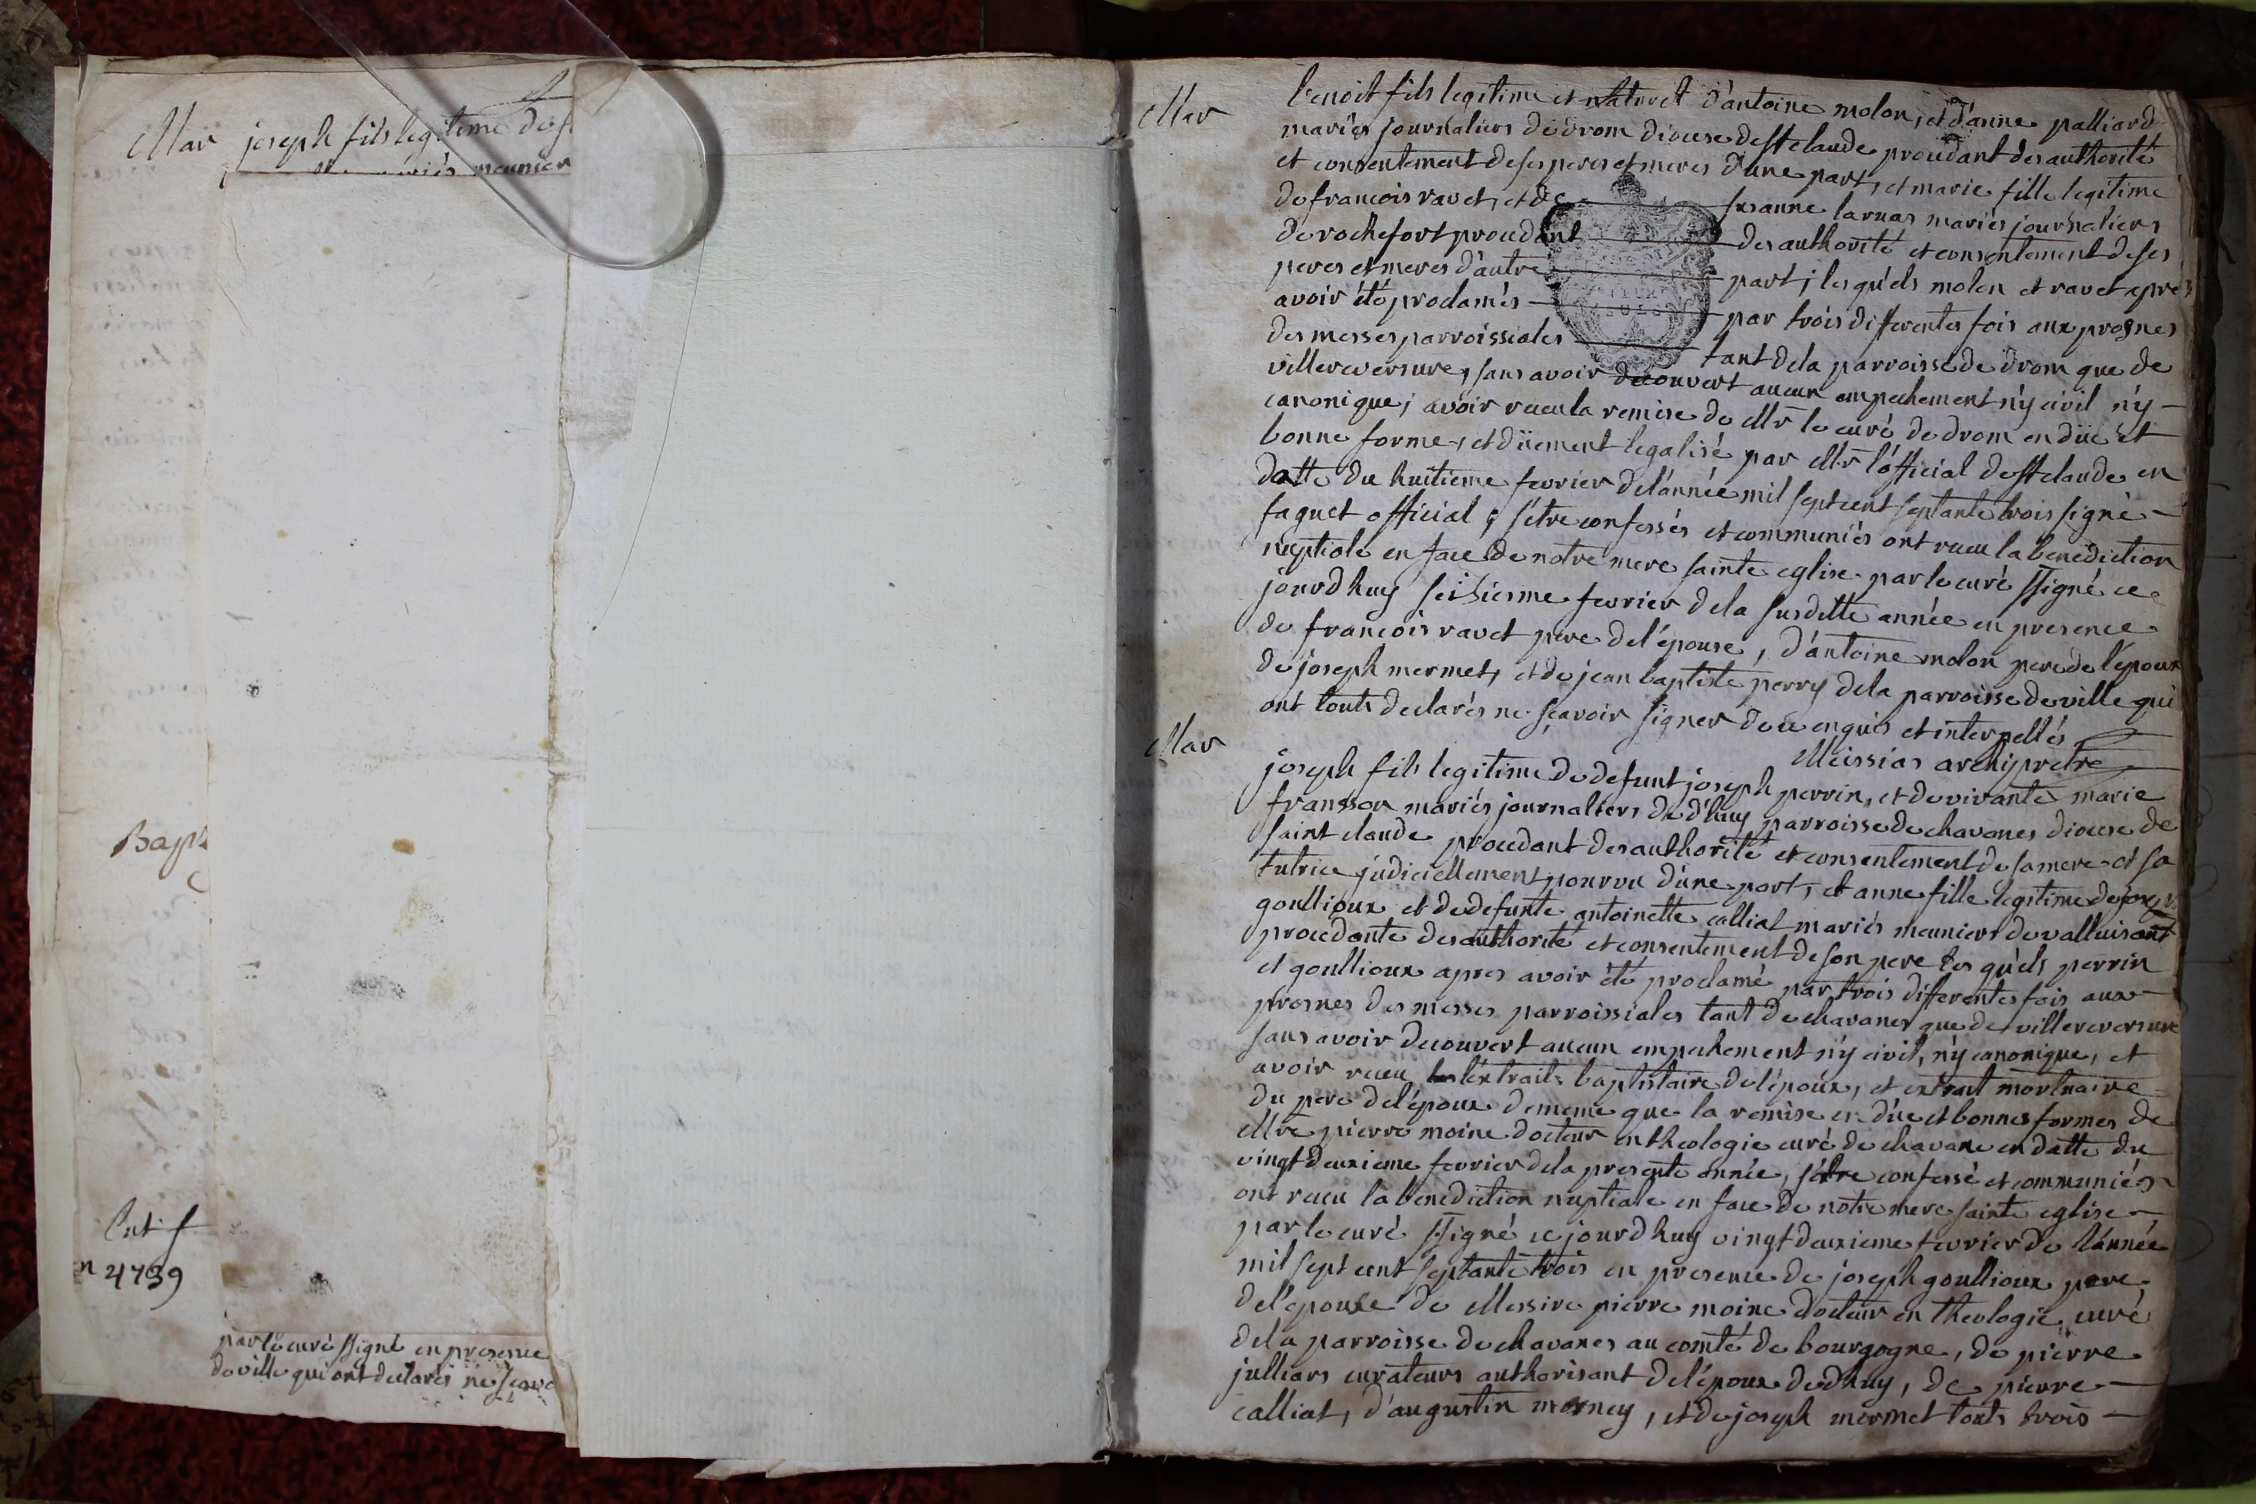 Mar
joseph fils legitime de
mariés meunier
Bapt
Ent. f
n 4739
par le curé ssigné en presence
de ville qui ont declarés ne scavo
Mar
benoit fils legitime et naturel d'antoine molon, et d'anne palliard
mariés journaliers de drom diocese de st claude procedant des authorité
et consentement de ses peres et meres d'une part, et marie fille legitime
de francois ravet, et de susanne larnas mariés journaliers
de rochefort procedant des authorité et consentement de ses
peres et meres d'autre part; les quels molon et ravet aprés
avoir été proclamés par trois differentes fois aux prosnes
des messes parroissiales tant de la parroisse de drom que de
villereversure, sans avoir decouvert aucun empechement n'y civil n'y
canonique; avoir receu la remise de Mr le curé de drom en düe et
bonne forme, et düement legalisé par Mr l'official de st claude en
datte du huitieme fevrier de l'année mil sept cent septante trois signé
faguet official; s'étre confessés et communiés ont receu la benediction
nuptiale en face de notre mere sainte eglise par le curé ssigné ce
jourdhuy seizieme fevrier de la susditte année en presence
de francois ravet pere de l'épouse, d'antoine molon pere de l'époux
de joseph mermet, et de jean baptiste perry de la parroisse de ville qui
ont touts declarés ne scavoir signer de ce enquis et interpellés
Meissias archiprétre
Mar
joseph fils legitime de defunt joseph perrin, et de vivante marie
fransson mariés journaliers de d'huy parroisse de chavanes diocese de
saint claude procedant des authorité et consentement de sa mere et sa
tutrice judiciellement pourvu d'une part, et anne fille legitime de joseph
goullioux et de defunte antoinette calliat mariés meuniers de valluisant
procedante des authorité et consentement de son pere les quels perrin
et goullioux apres avoir été proclamé par trois differentes fois aux
prosnes des messes parroissiales tant de chavanes que de villereversure
sans avoir decouvert aucun empechement n'y civil, n'y canonique, et
avoir receu l'extrait baptistaire de l'époux, et extrait mortuaire
du pere de l'époux de meme que la remise en düe et bonnes formes de
Mre pierre moine docteur en theologie curé de chavane en datte du
vingt deuxieme fevrier de la presente année, s'étre confessé et communiés
ont receu la benediction nuptiale en face de notre mere sainte eglise
par le curé ssigné ce jourdhuy vingt deuxieme fevrier de l'année
mil sept cent septante trois en presence de joseph goullioux pere
de l'epouse de Messire pierre moine docteur en theologie curé
de la parroisse de chavanes au comté de bourgogne, de pierre
julliars curateurs authorisant de l'époux de dhuy, de pierre
calliat, d'augustin morney, et de joseph mermet touts trois